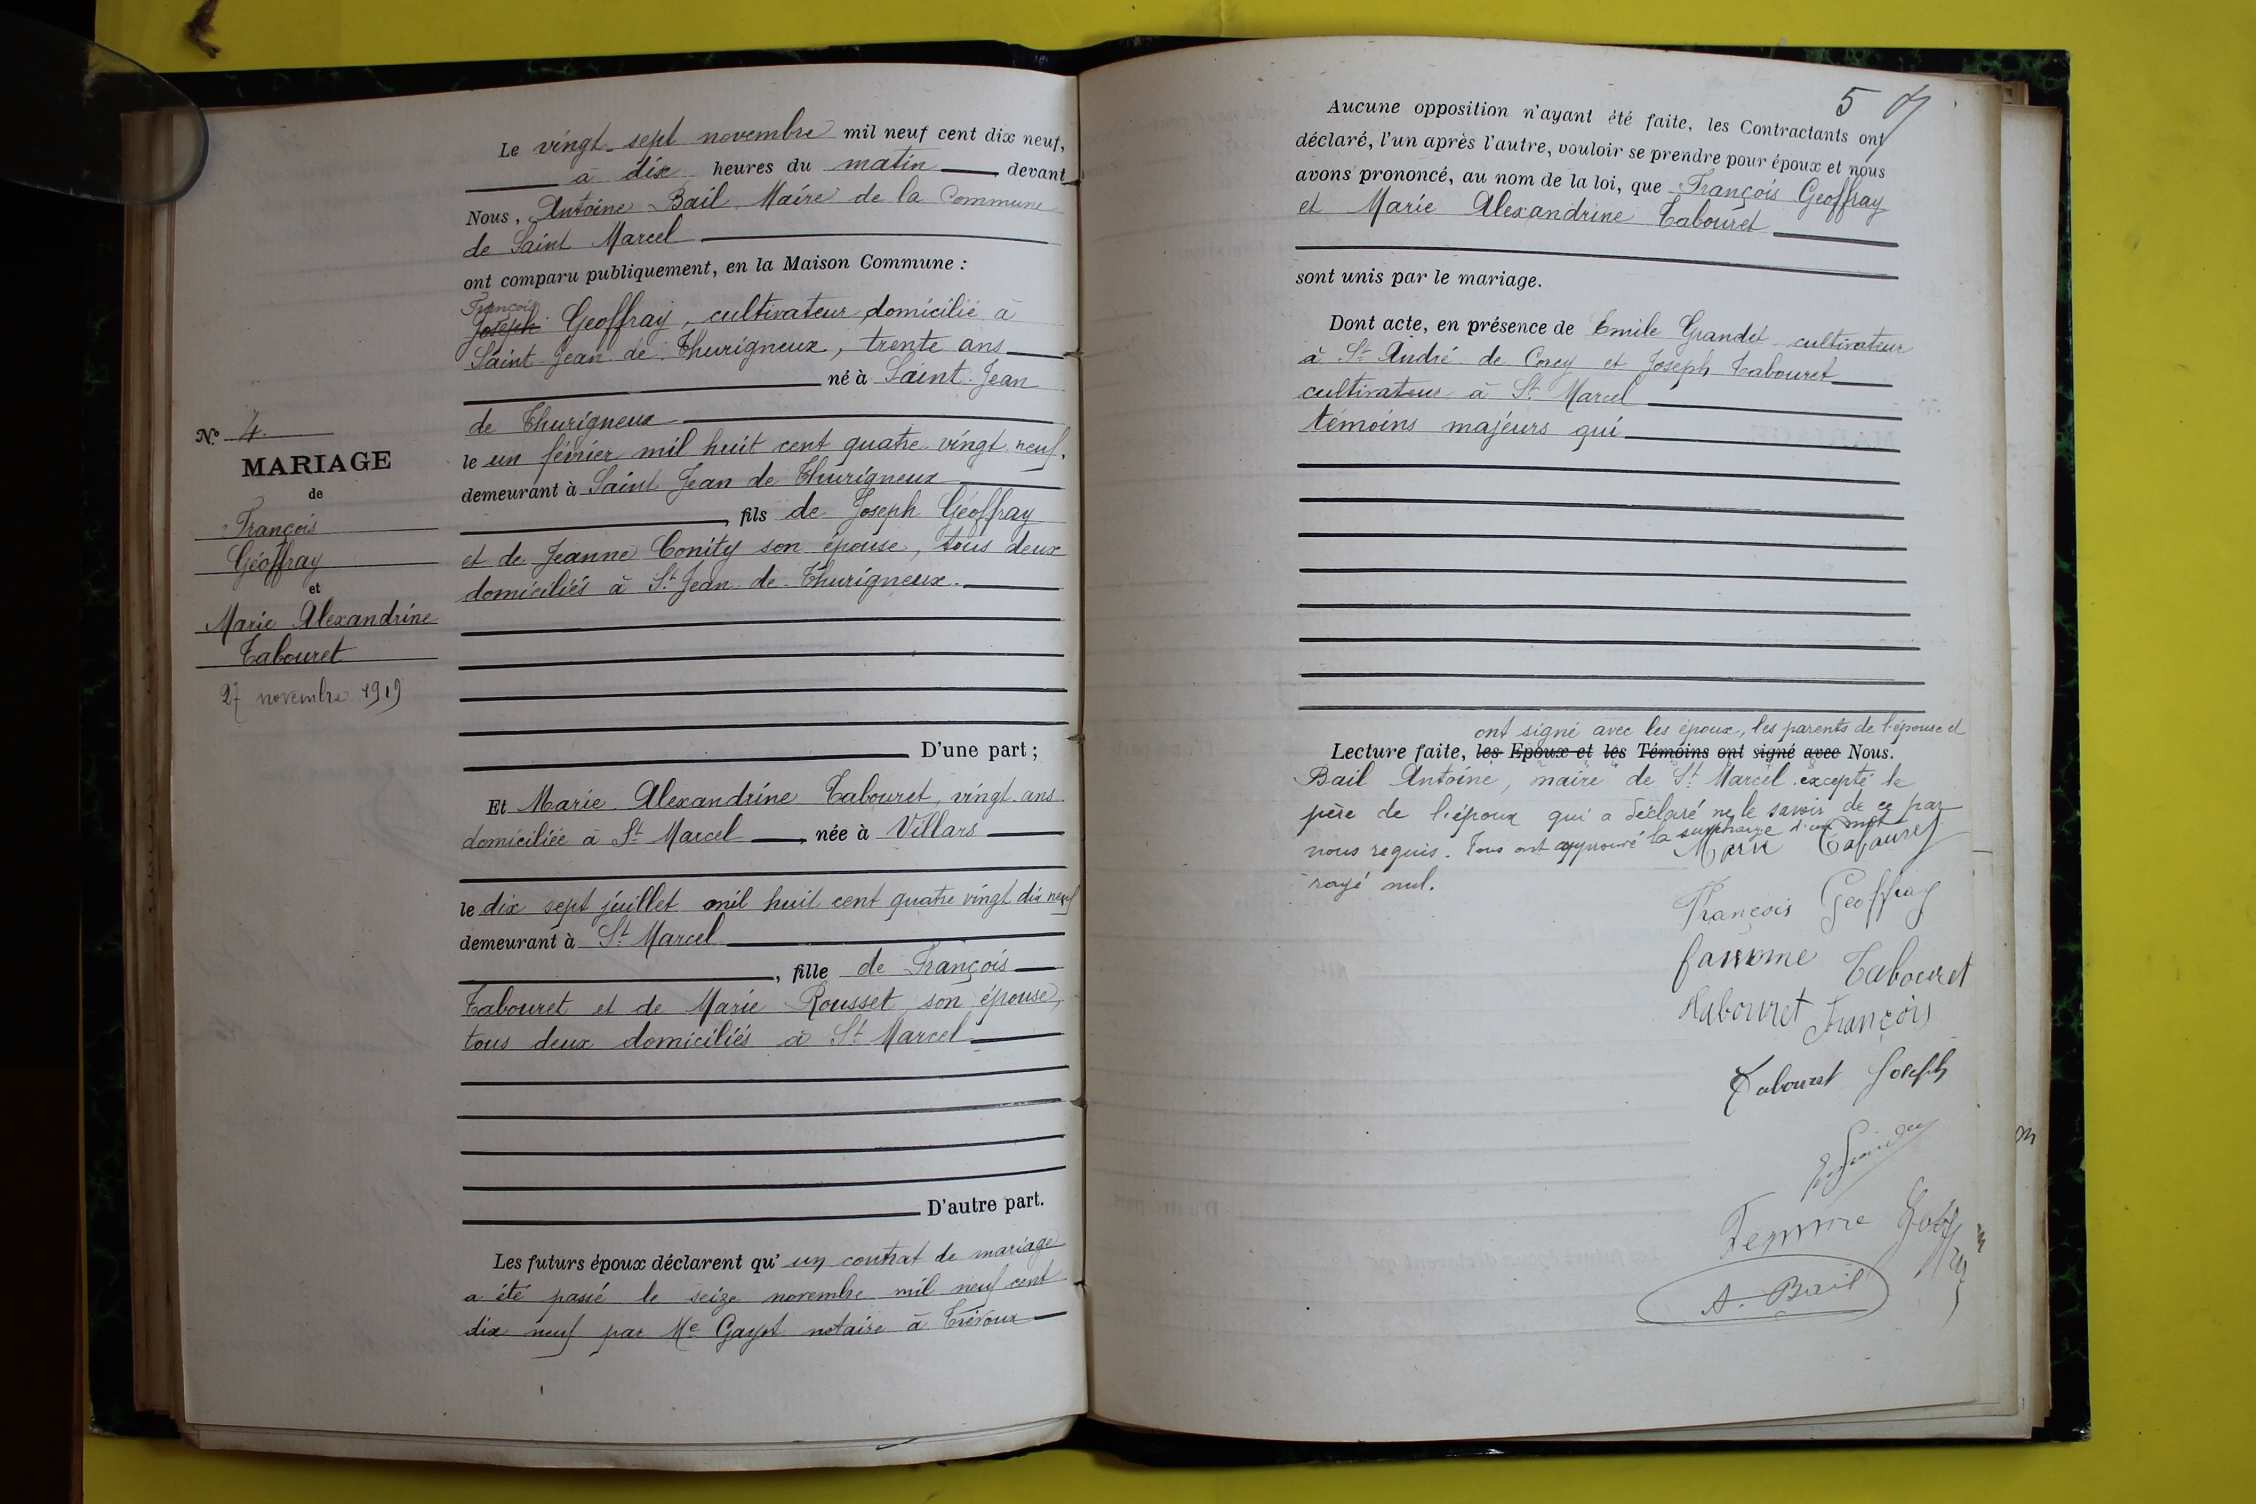 Le vingt-sept novembre mil neuf cent dix neuf,
à dix heures du matin devant
Nous, Antoine Bail Maire de la Commune
de Saint Marcel
ont comparu publiquement, en la Maison Commune :
François
Joseph Geoffray, cultivateur domicilié à
Saint Jean de Thurigneux, trente ans
né à Saint Jean
de Thurigneux
le un février mil huit cent quatre vingt neuf,
demeurant à Saint Jean de Thurigneux
, fils de Joseph Géoffray
et de Jeanne Conity son épouse, tous deux
domiciliés à St Jean de Thurigneux.
D'une part ;
Et Marie Alexandrine Tabouret, vingt ans
domiciliée à St Marcel, née à Villars
le dix sept juillet mil huit cent quatre vingt dix neuf
demeurant à St Marcel
, fille de François
Tabouret et de Marie Rousset son épouse,
tous deux domiciliés à St Marcel
D'autre part.
Les futurs époux déclarent qu'un contrat de mariage
a été passé le seize novembre mil neuf cent
dix neuf par Me Gayot notaire à Trévoux
No 4.
MARIAGE
de
François
Géoffray
et
Marie Alexandrine
Tabouret
27 novembre 1919
5
Aucune opposition n'ayant été faite, les Contractants ont
déclaré, l'un après l'autre, vouloir se prendre pour époux et nous
avons prononcé, au nom de la loi, que François Geoffray
et Marie Alexandrine Tabouret
sont unis par le mariage.
Dont acte, en présence de Emile Grandet cultivateur
à St André de Corcy et Joseph Tabouret
cultivateur à St Marcel
témoins majeurs qui
ont signé avec les époux, les parents de l'épouse et
Lecture faite, les Epoux et les Témoins ont signé avec Nous.
Bail Antoine, maire de St Marcel excepté le
père de l'époux qui a déclaré ne le savoir de ce par
nous requis. Tous ont approuvé la surcharge d'un mot
rayé nul.
Marie Tabouret
François Geoffray
famme Tabouret
Tabouret François
Tabouret Joseph
Femme Geoffray
A. Bail